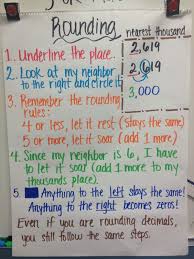 Rounding
nearest thousand
1. Underline the place.
2,619
2. Look at my neighbor
to the right and circle it
2,619
3. Remember the rounding
rules:
3,000
4 or less, let it rest (Stays the same)
5 or more, let it soar (add 1 more)
4. Since my neighbor is 6, I have
to let it soar (add 1 more to my
thousands place).
5. Anything to the left stays the same!
Anything to the right becomes zeros!
Even if you are rounding decimals,
you still follow the same steps.